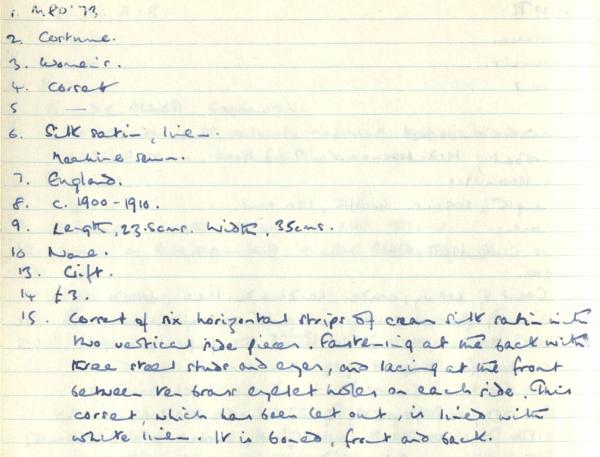 1. M.80'73.
2. Costume.
3. Women's.
4. Corset
5 —
6. Silk satin, linen.
Machine sewn.
7. England.
8. c. 1900-1910.
9. Length, 23.5cms. Width, 35cms.
10 None.
13. Gift.
14 £3.
15. Corset of six horizontal strips of cream silk satin with
two vertical side pieces. Fastening at the back with
three steel studs and eyes, and lacing at the front
between ten brass eyelet holes on each side. This
corset, which has been let out, is lined with
white linen. It is boned, front and back.